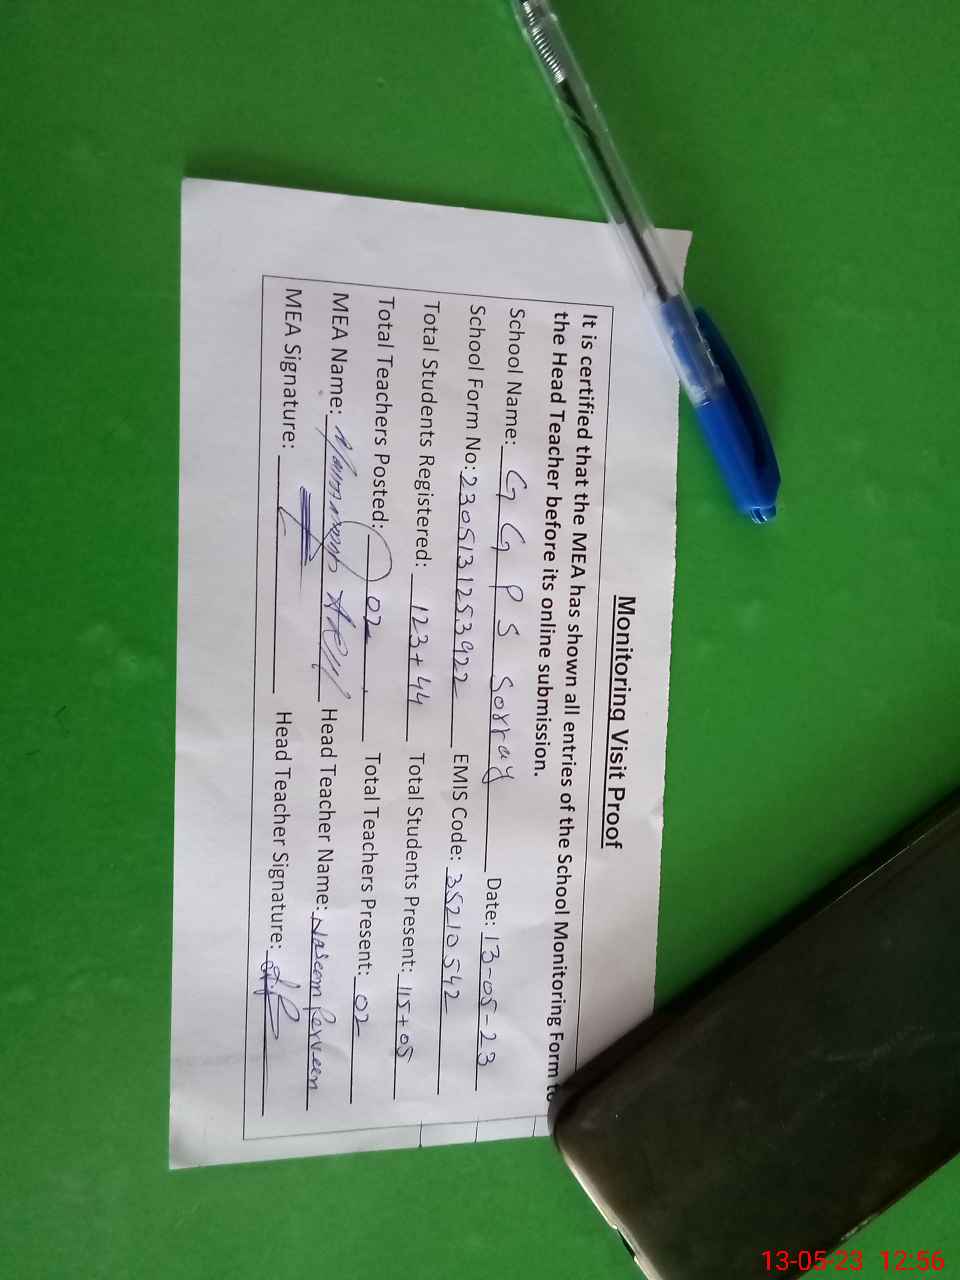 Monitoring Visit Proof
It is certified that the MEA has shown all entries of the School Monitoring Form to
the Head Teacher before its online submission.
School Name: G G P S Sorray Date: 13-05-23
School Form No: 2305131253922 EMIS Code: 35210542
Total Students Registered: 123+44 Total Students Present: 115+05
Total Teachers Posted: 02 Total Teachers Present: 02
MEA Name: Head Teacher Name: Naseem Perveen
MEA Signature: Head Teacher Signature:
13-05-23 12:56